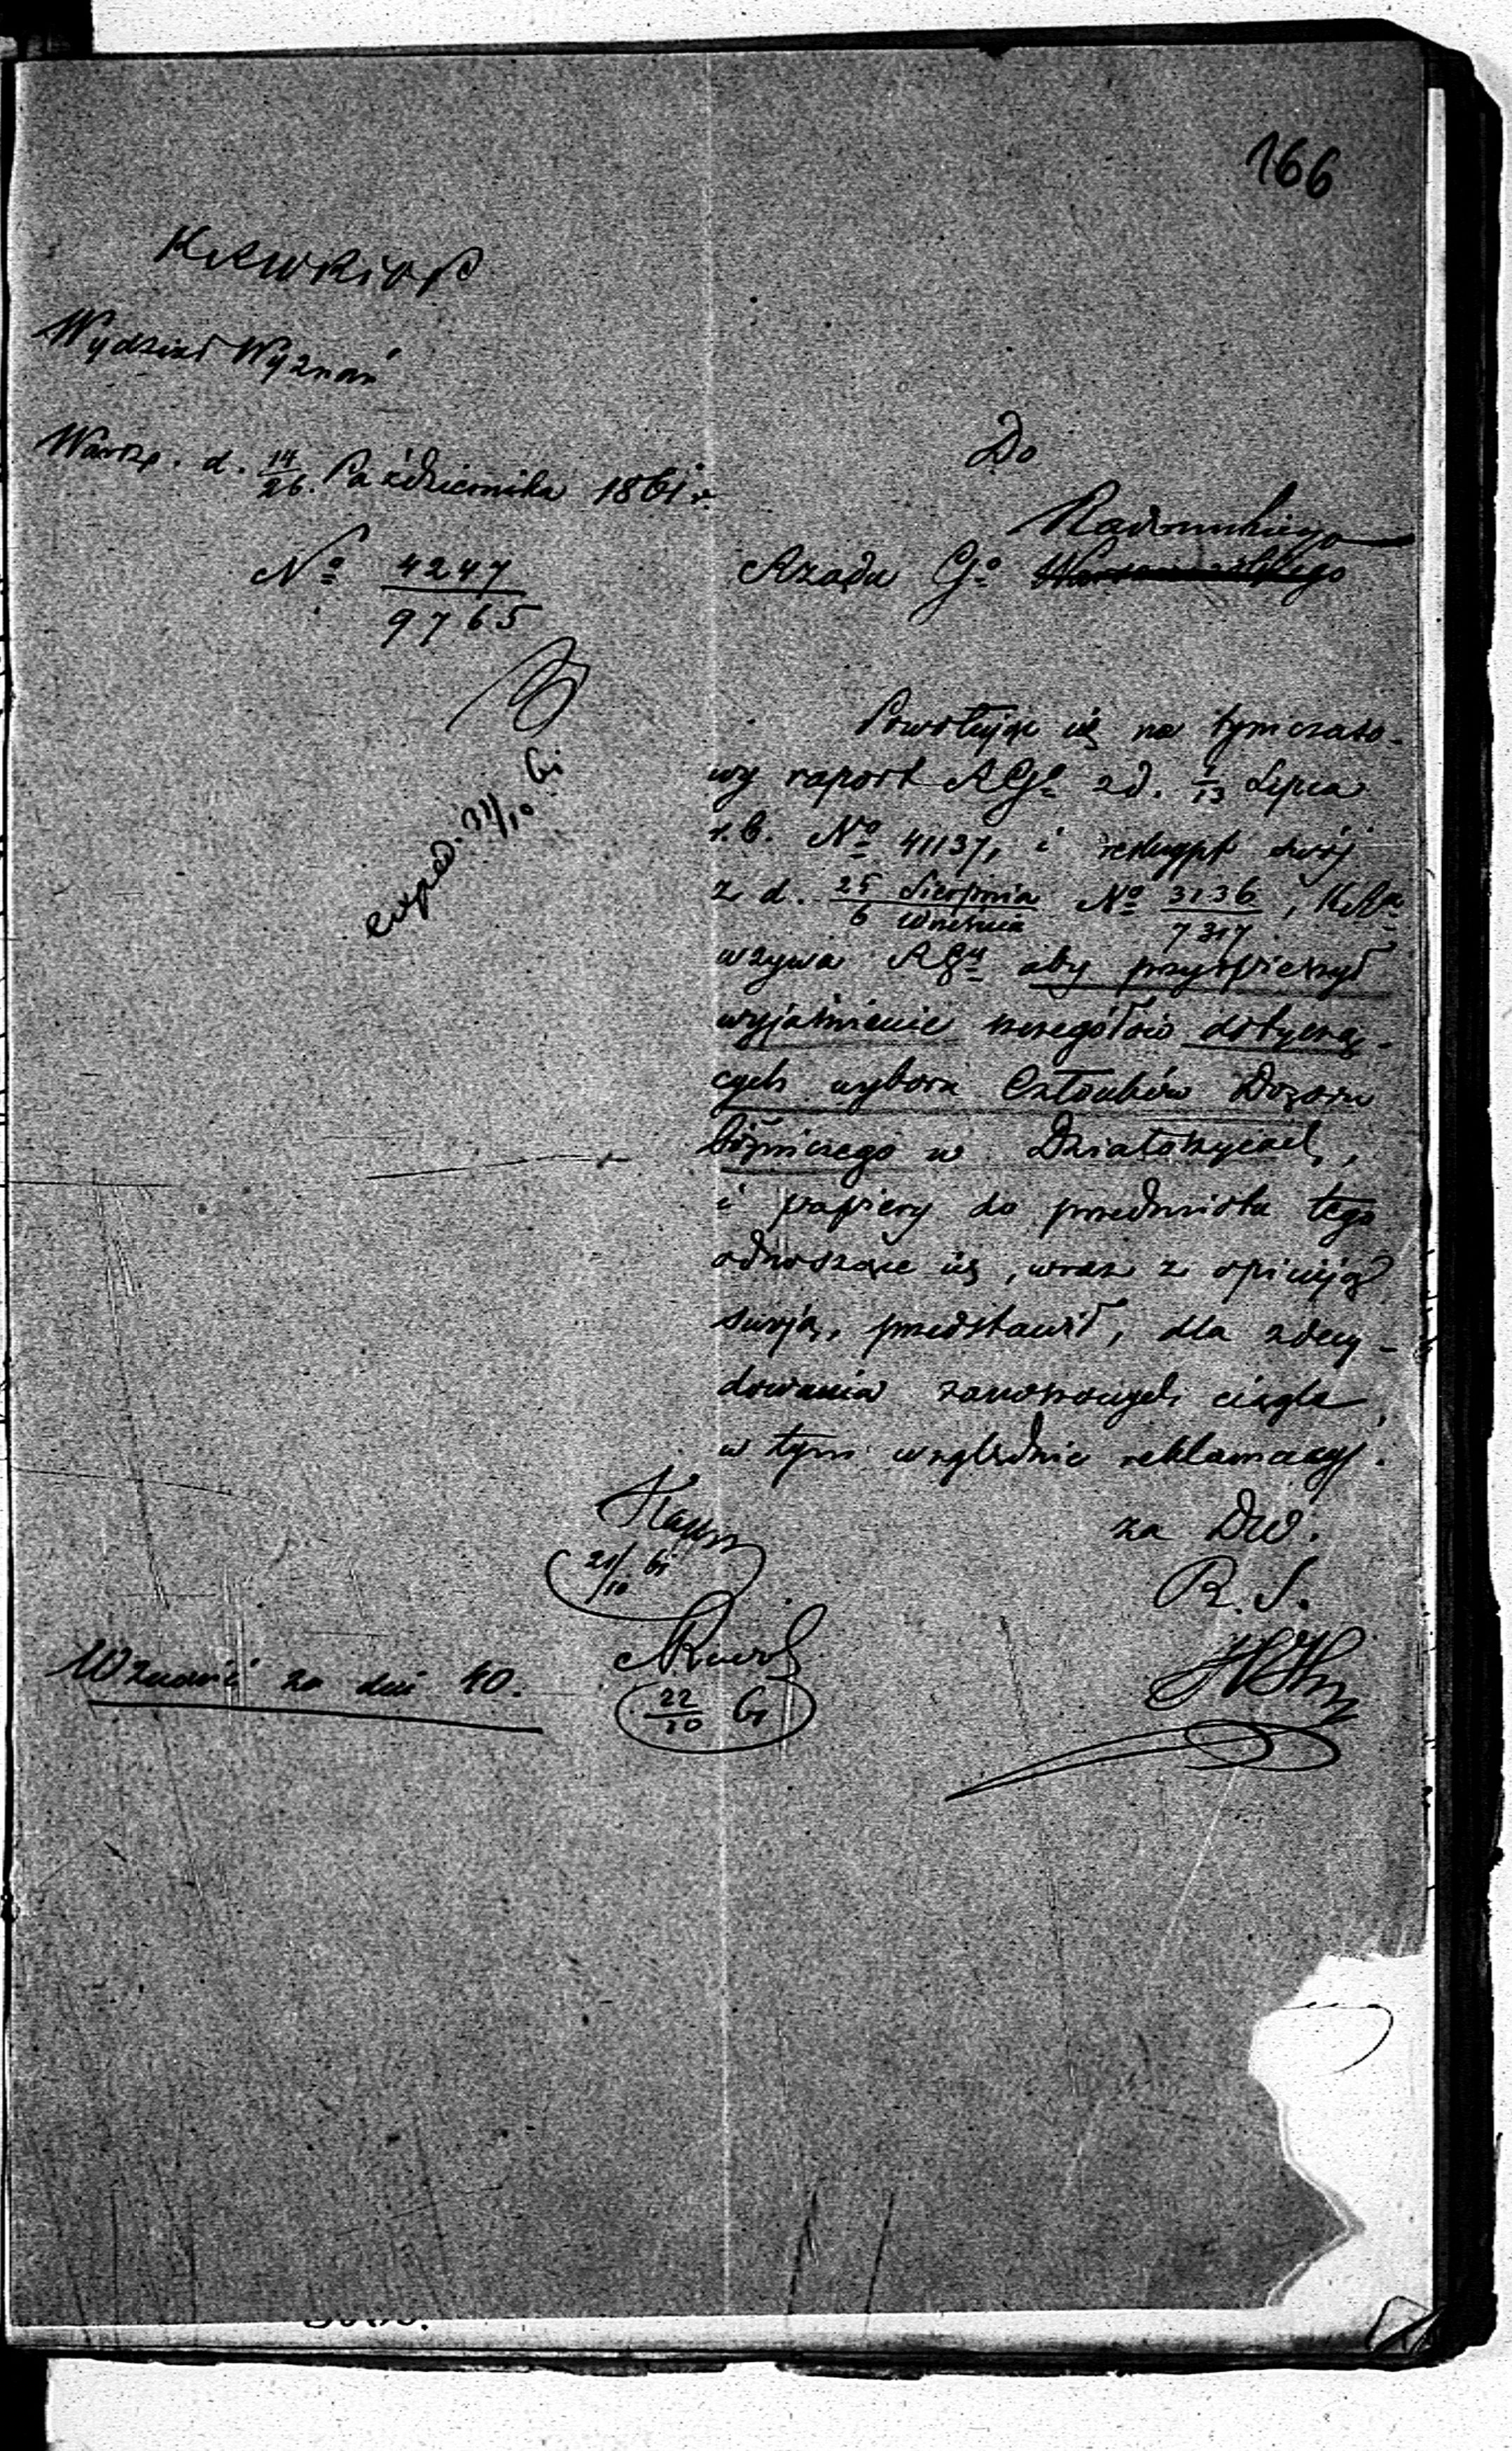 166
K.R.W.R.i O.P.
Wydział Wyznań
Warsz. d. 14/26 Października 1861 r.
No 4247/9765
exped. 31/10 61
Do
Radomskiego
Rządu Go Warszawskiego
Powołując się na tymczaso-
wy raport RGo z d. 1/13 Lipca
r.b. No 41137, i reskrypt swój
z d. 25 Sierpnia/6 Września No 3236/7317, K.R.
wzywa RGy aby przyspieszył
wyjaśnienie szczegółów dotyczą-
cych wyboru Członków Dozoru
Bóżniczego w Działoszycach,
i papiery do przedmiotu tego
odnoszące się, wraz z opiniją
swoją, przedstawił, dla zdecy-
dowania zanoszonych ciągle
w tym względzie reklamacyj.
za Dw.
R. S.
21/10 61
22/10 61
Wznowić za dni 40.